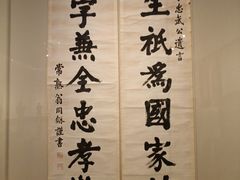 忠武公遺言
生祇為國家
字兼全忠孝
常熟翁同龢謹書